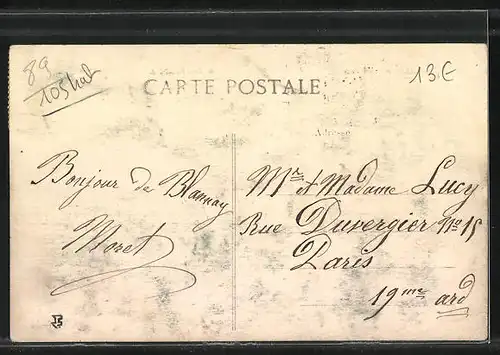 89
13€
CARTE POSTALE
Adresse
Bonjour de Blannay
Moret
Mr et Madame Lucy
Rue Duvergier No 15
Paris
19me ard